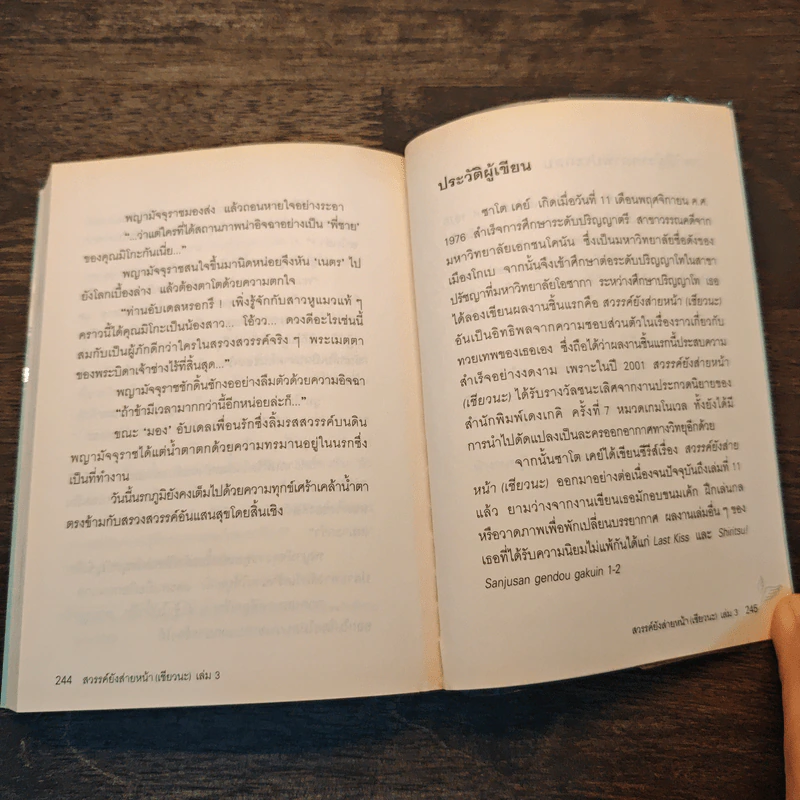 พญามัจจุราชมองส่ง แล้วถอนหายใจอย่างระอา
“...ว่าแต่ใครที่ได้สถานภาพน่าอิจฉาอย่างเป็น ‘พี่ชาย’
ของคุณมิโกะกันเนี่ย...”
พญามัจจุราชสนใจขึ้นมานิดหน่อยจึงหัน ‘เนตร’ ไป
ยังโลกเบื้องล่าง แล้วต้องตาโตด้วยความตกใจ
“ท่านอับเดลหรอกรึ ! เพิ่งรู้จักกับสาวหูแมวแท้ ๆ
คราวนี้ได้คุณมิโกะเป็นน้องสาว... โอ้ววว... ดวงดีอะไรเช่นนี้
สมกับเป็นผู้ภักดีกว่าใครในสรวงสวรรค์จริง ๆ พระเมตตา
ของพระบิดาเจ้าช่างไร้ที่สิ้นสุด...”
พญามัจจุราชชักดิ้นชักงออย่างลืมตัวด้วยความอิจฉา
“ถ้าข้ามีเวลามากกว่านี้อีกหน่อยล่ะก็...”
ขณะ ‘มอง’ อับเดลเพื่อนรักซึ่งลิ้มรสสวรรค์บนดิน
พญามัจจุราชได้แต่น้ำตาตกด้วยความทรมานอยู่ในนรกซึ่ง
เป็นที่ทำงาน
วันนี้นรกภูมิยังคงเต็มไปด้วยความทุกข์เศร้าเคล้าน้ำตา
ตรงข้ามกับสรวงสวรรค์อันแสนสุขโดยสิ้นเชิง
244 สวรรค์ยังส่ายหน้า (เชียวนะ) เล่ม 3
ประวัติผู้เขียน
ซาโต เคย์ เกิดเมื่อวันที่ 11 เดือนพฤศจิกายน ค.ศ.
1976 สำเร็จการศึกษาระดับปริญญาตรี สาขาวรรณคดีจาก
มหาวิทยาลัยเอกชนโคนัน ซึ่งเป็นมหาวิทยาลัยชื่อดังของ
เมืองโกเบ จากนั้นจึงเข้าศึกษาต่อระดับปริญญาโทในสาขา
ปรัชญาที่มหาวิทยาลัยโอซากา ระหว่างศึกษาปริญญาโท เธอ
ได้ลองเขียนผลงานชิ้นแรกคือ สวรรค์ยังส่ายหน้า (เชียวนะ)
อันเป็นอิทธิพลจากความชอบส่วนตัวในเรื่องราวเกี่ยวกับ
ทวยเทพของเธอเอง ซึ่งถือได้ว่าผลงานชิ้นแรกนี้ประสบความ
สำเร็จอย่างงดงาม เพราะในปี 2001 สวรรค์ยังส่ายหน้า
(เชียวนะ) ได้รับรางวัลชนะเลิศจากงานประกวดนิยายของ
สำนักพิมพ์เดงเกกิ ครั้งที่ 7 หมวดเกมโนเวล ทั้งยังได้มี
การนำไปดัดแปลงเป็นละครออกอากาศทางวิทยุอีกด้วย
จากนั้นซาโต เคย์ได้เขียนซีรีส์เรื่อง สวรรค์ยังส่าย
หน้า (เชียวนะ) ออกมาอย่างต่อเนื่องจนปัจจุบันถึงเล่มที่ 11
แล้ว ยามว่างจากงานเขียนเธอมักอบขนมเค้ก ฝึกเล่นกล
หรือวาดภาพเพื่อพักเปลี่ยนบรรยากาศ ผลงานเล่มอื่น ๆ ของ
เธอที่ได้รับความนิยมไม่แพ้กันได้แก่ Last Kiss และ Shiritsu!
Sanjusan gendou gakuin 1-2
สวรรค์ยังส่ายหน้า (เชียวนะ) เล่ม 3 245